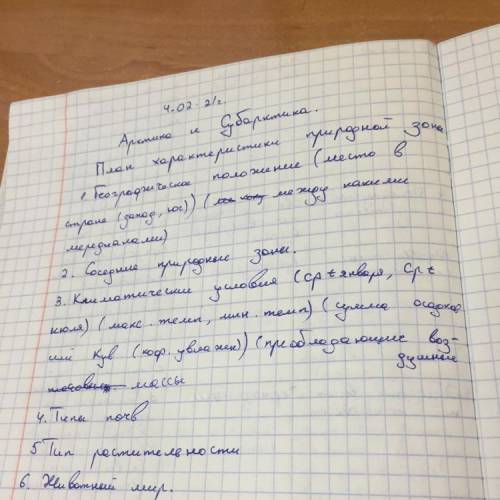 4.02.21г.
Арктика и Субарктика.
План характеристики природной зоны
1. Географическое положение (место в
стране (запад, юг)) ( между какими
мередианами)
2. Соседние природные зоны.
3. Климатические условия (Ср t января, Ср t
июля) (макс. темп, мин. темп) (сумма осадков
или Кув (коф. увлажн)) (преобладающие воз-
душные
массы
4. Типы почв
5 Тип растительности
6. Животный мир.